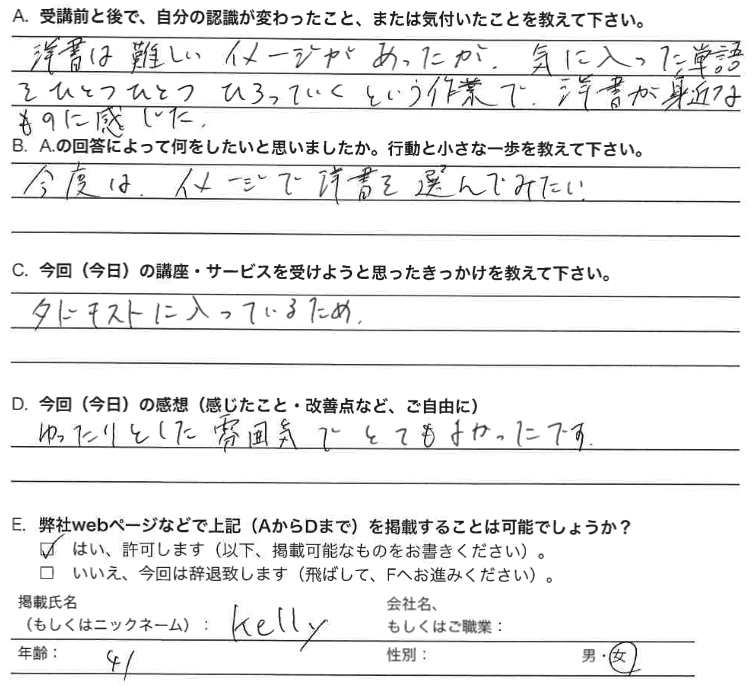 A. 受講前と後で、自分の認識が変わったこと、または気付いたことを教えて下さい。
洋書は難しいイメージがあったが、気に入った単語
をひとつひとつひろっていくという作業で、洋書が身近な
ものに感じた。
B. A.の回答によって何をしたいと思いましたか。行動と小さな一歩を教えて下さい。
今度は、イメージで洋書を選んでみたい
C. 今回（今日）の講座・サービスを受けようと思ったきっかけを教えて下さい。
に入っているため。
D. 今回（今日）の感想（感じたこと・改善点など、ご自由に）
ゆったりとした雰囲気でとてもよかったです。
E. 弊社webページなどで上記（AからDまで）を掲載することは可能でしょうか？
☑ はい、許可します（以下、掲載可能なものをお書きください）。
□ いいえ、今回は辞退致します（飛ばして、Fへお進みください）。
掲載氏名
（もしくはニックネーム）： Kelly
会社名、
もしくはご職業：
年齢： 41
性別： 男・女